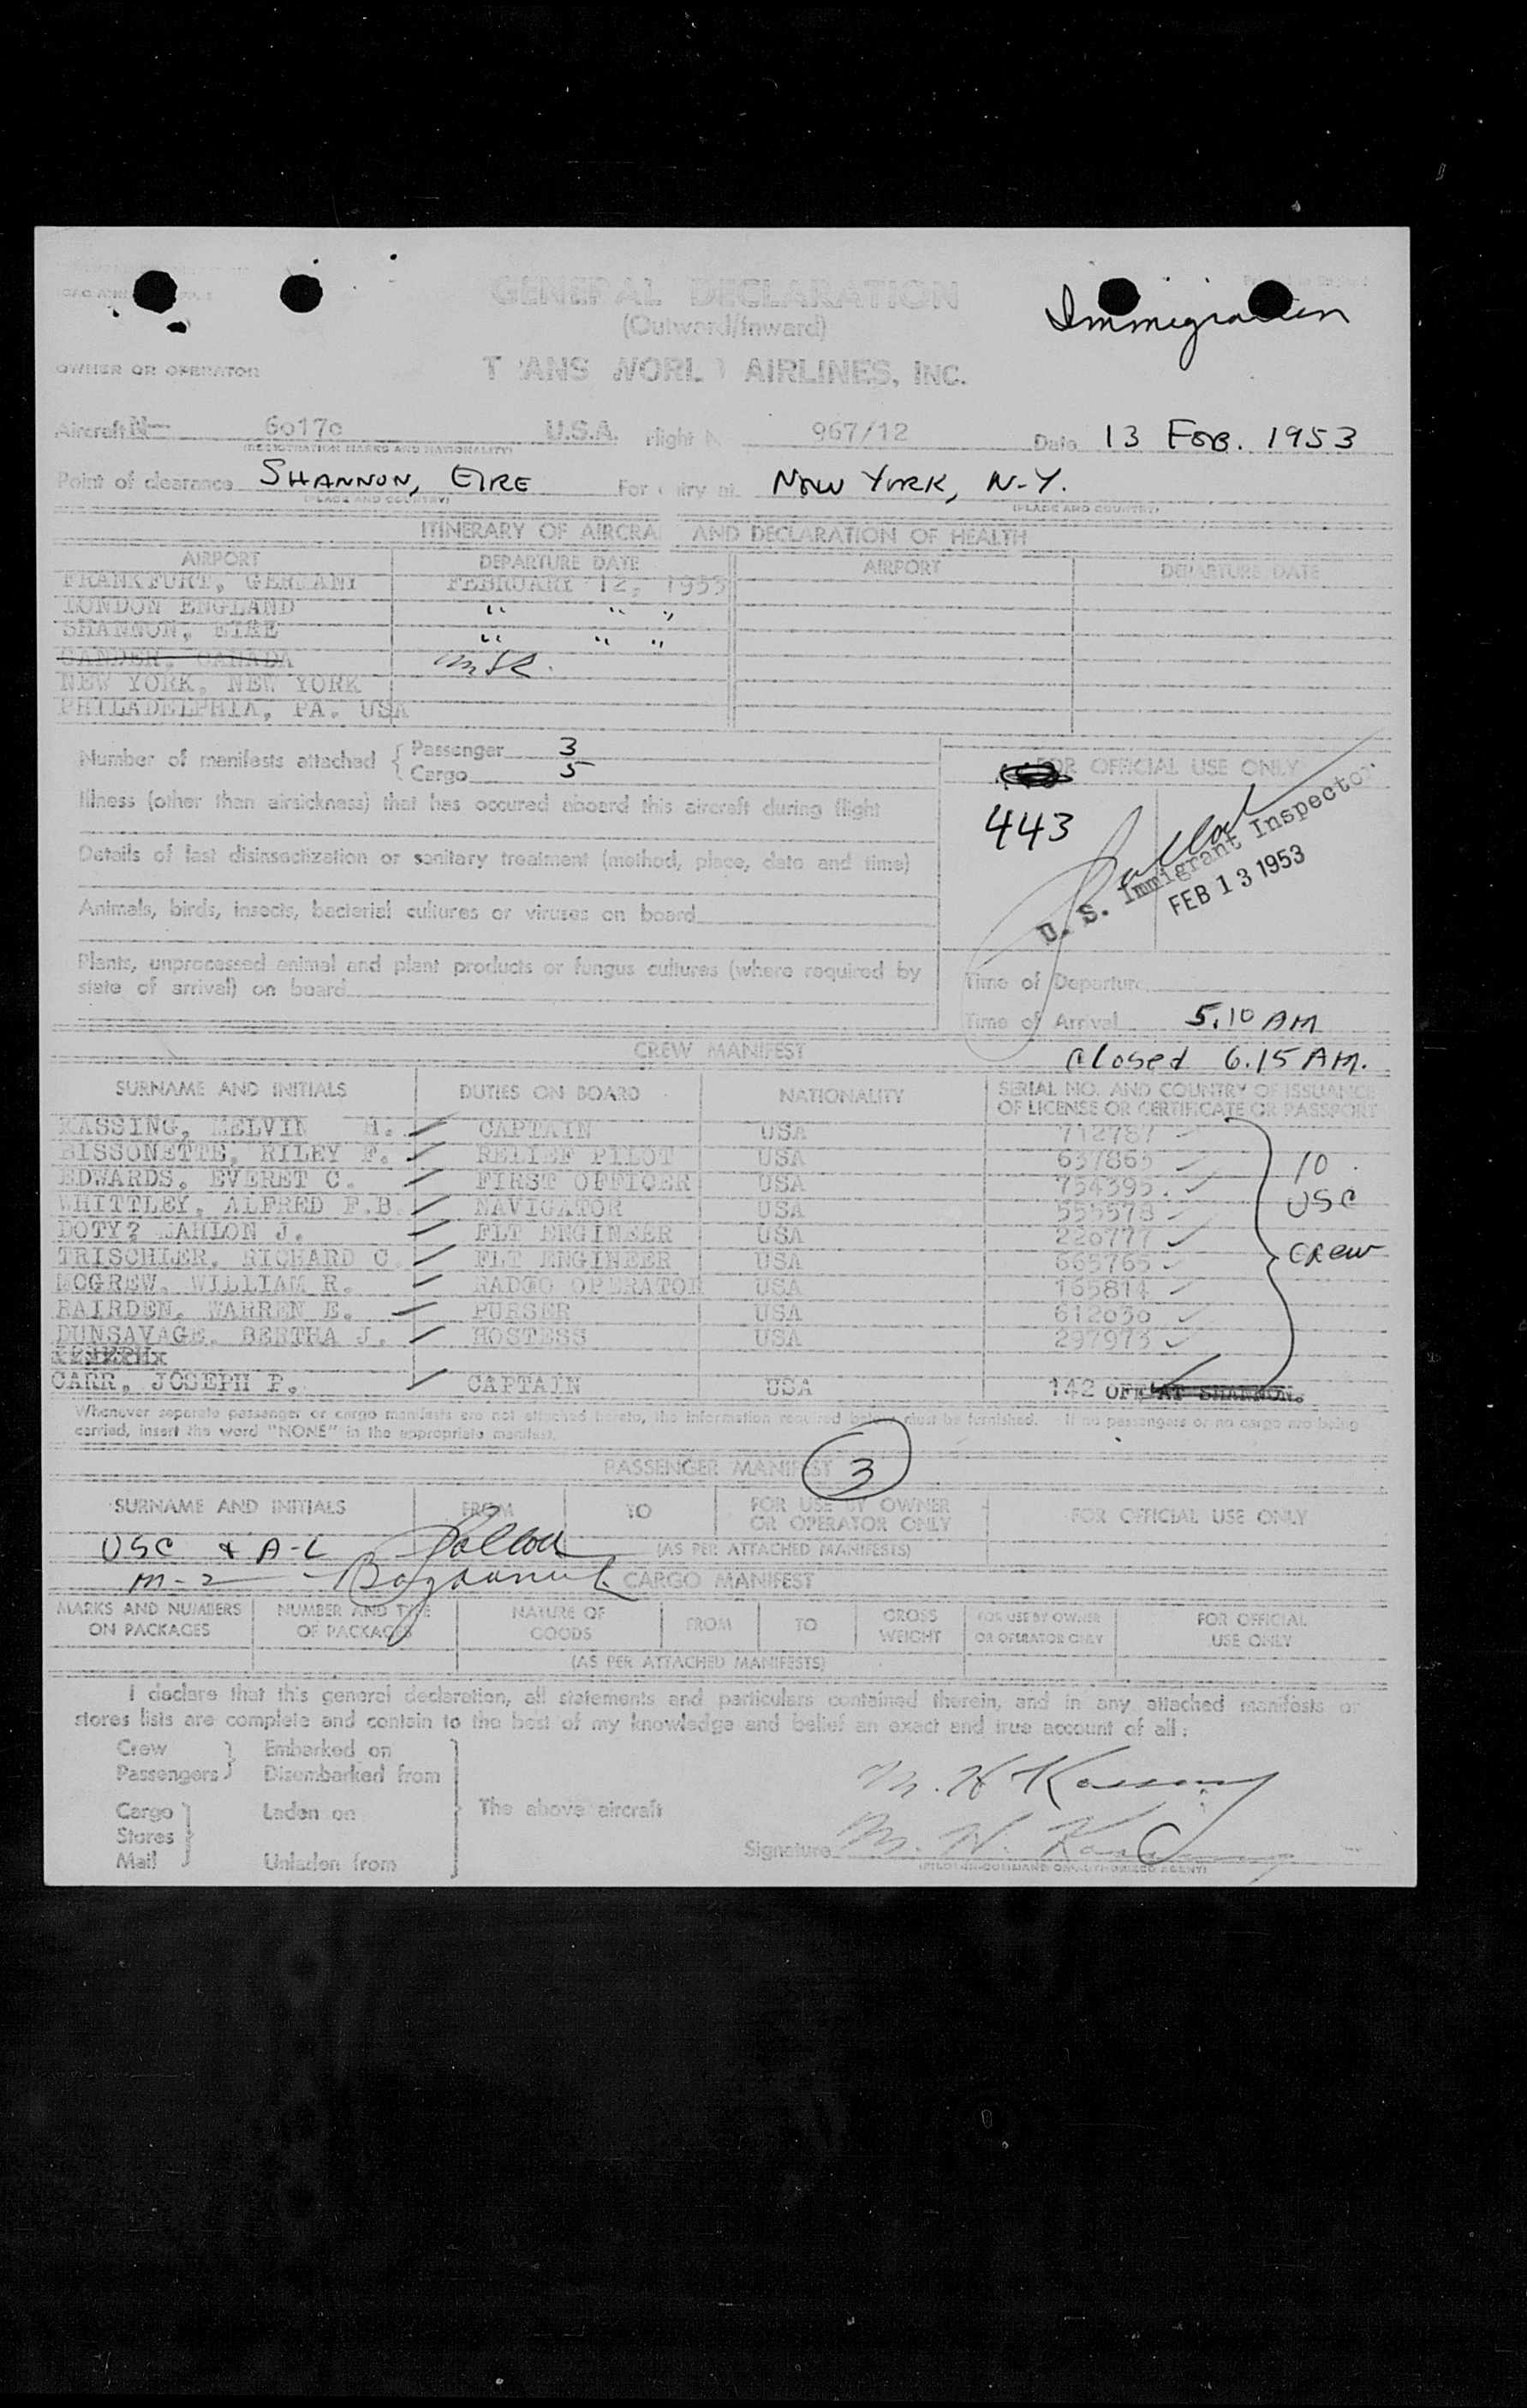 GENERAL DECLARATION
(Outward/Inward)
Immigration
OWNER OR OPERATOR
T ANS WORL AIRLINES, INC.
Aircraft N 6017c U.S.A. Flight N 967/12 Date 13 FEB. 1953
(REGISTRATION MARKS AND NATIONALITY)
Point of clearance SHANNON, EIRE For entry at NEW YORK, N.Y.
(PLACE AND COUNTRY) (PLACE AND COUNTRY)
ITINERARY OF AIRCRA AND DECLARATION OF HEALTH
AIRPORT DEPARTURE DATE AIRPORT DEPARTURE DATE
FRANKFURT, GERMANY FEBRUARY 12, 1953
LONDON ENGLAND " " "
SHANNON, EIRE " " "
GANDER, CANADA
NEW YORK, NEW YORK
PHILADELPHIA, PA. USA
Number of manifests attached { Passenger 3
Cargo 5
FOR OFFICIAL USE ONLY
443
U. S. Immigrant Inspector
FEB 13 1953
Illness (other than airsickness) that has occured aboard this aircraft during flight
Details of last disinsectization or sanitary treatment (method, place, date and time)
Animals, birds, insects, bacterial cultures or viruses on board
Plants, unprocessed animal and plant products or fungus cultures (where required by
state of arrival) on board
Time of Departure
Time of Arrival 5.10 AM
Closed 6.15 AM.
CREW MANIFEST
SURNAME AND INITIALS DUTIES ON BOARD NATIONALITY SERIAL NO. AND COUNTRY OF ISSUANCE
OF LICENSE OR CERTIFICATE OR PASSPORT
KASSING, MELVIN H. CAPTAIN USA 712787
BISSONETTE, RILEY F. RELIEF PILOT USA 637865
EDWARDS, EVERET C. FIRST OFFICER USA 754395.
WHITTLEY, ALFRED F.B. NAVIGATOR USA 555578
DOTY? MAHLON J. FLT ENGINEER USA 226777
TRISCHLER, RICHARD C. FLT ENGINEER USA 665765
MCGREW, WILLIAM R. RADIO OPERATOR USA 165814
FAIRDEN, WARREN E. PURSER USA 612030
DUNSAVAGE, BERTHA J. HOSTESS USA 297973
CARR, JOSEPH P. CAPTAIN USA 142 OFF AT SHANNON.
10
USC
Crew
Whenever separate passenger or cargo manifests are not attached hereto, the information required below must be furnished. If no passengers or no cargo are being
carried, insert the word "NONE" in the appropriate manifest.
PASSENGER MANIFEST 3
SURNAME AND INITIALS FROM TO FOR USE BY OWNER
OR OPERATOR ONLY FOR OFFICIAL USE ONLY
USC & A-L (AS PER ATTACHED MANIFESTS)
M-2
CARGO MANIFEST
MARKS AND NUMBERS
ON PACKAGES NUMBER AND TYPE
OF PACKAGES NATURE OF
GOODS FROM TO GROSS
WEIGHT FOR USE BY OWNER
OR OPERATOR ONLY FOR OFFICIAL
USE ONLY
(AS PER ATTACHED MANIFESTS)
I declare that this general declaration, all statements and particulars contained therein, and in any attached manifests or
stores lists are complete and contain to the best of my knowledge and belief an exact and true account of all:
Crew } Embarked on
Passengers Disembarked from
Cargo } Laden on The above aircraft
Stores
Mail Unladen from
M. H Kassing
Signature M. H. Kassing
(PILOT-IN-COMMAND OR AUTHORISED AGENT)